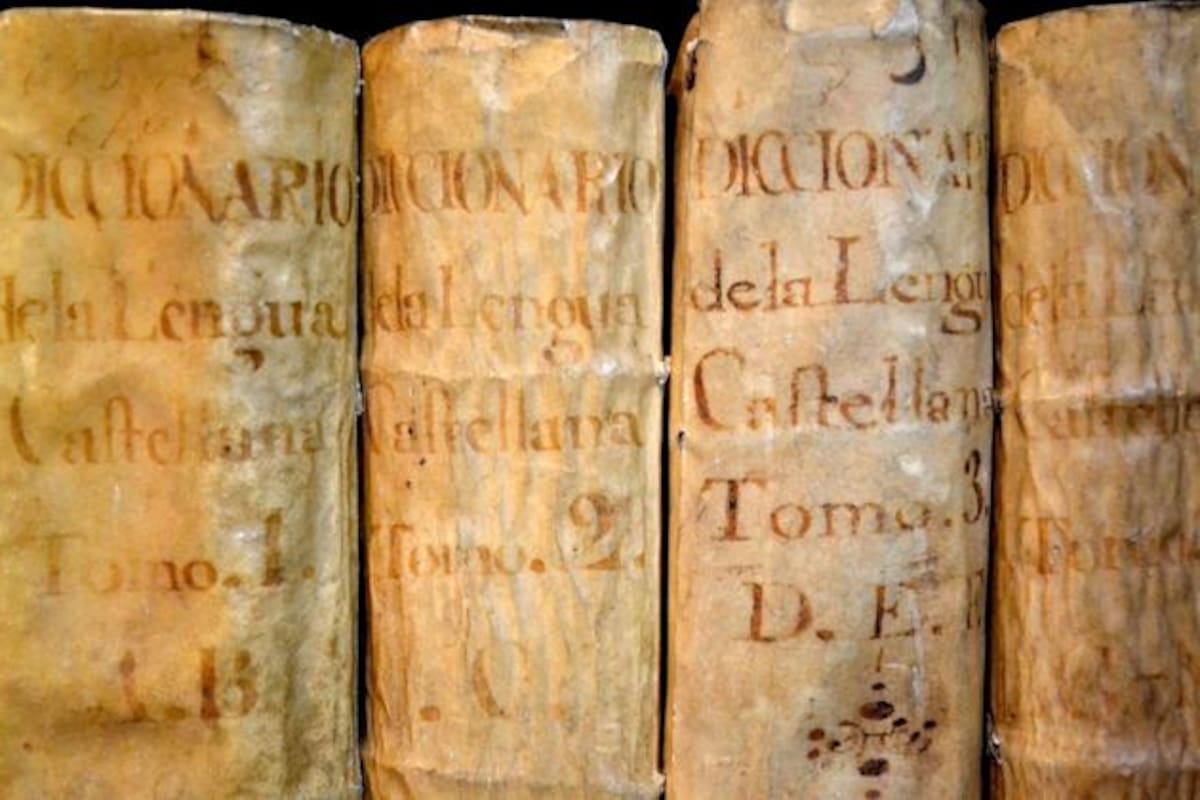 DICCIONARIO
dela Lengua
Castellana
Tomo. 1.
A. B
DICCIONARIO
dela Lengua
Castellana
Tomo. 2.
. C .
DICCIONAR
dela Lengu
Castellana
Tomo. 3.
D. E. F
DICCION
dela Len
Castella
Tomo